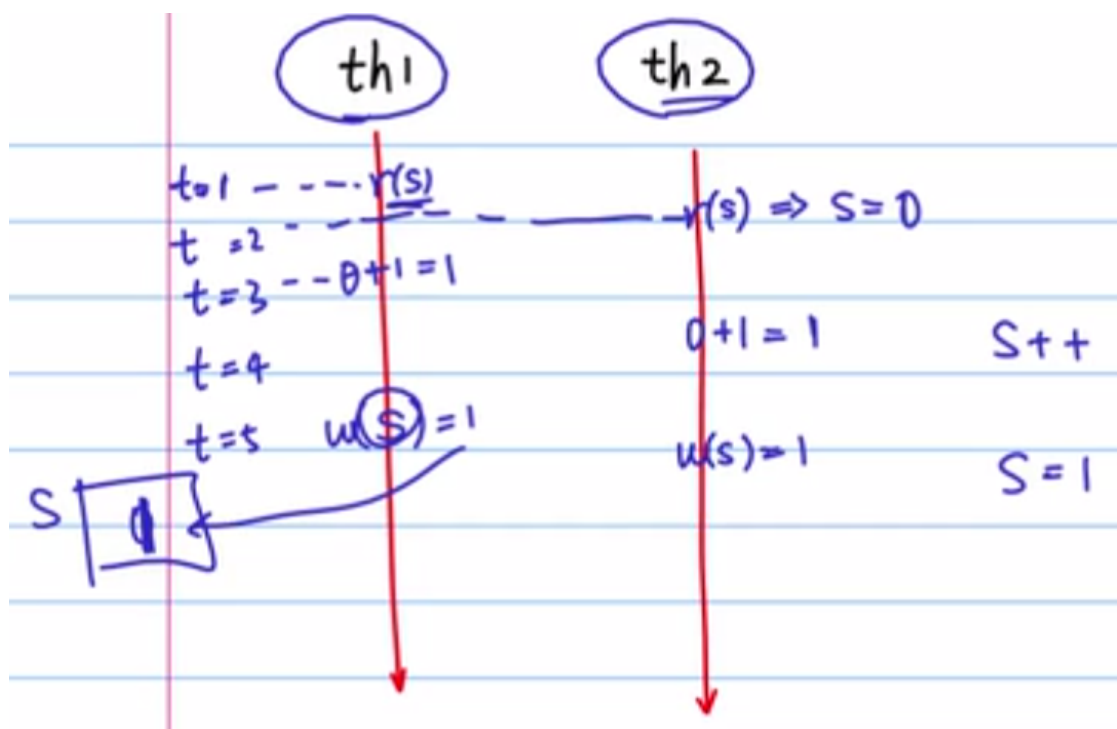 th1 th2
t=1 ---- r(s)
r(s) => S=0
t =2
t=3 -- 0+1=1
0+1=1 S++
t=4
t=5 w(S)=1
w(s)=1 S=1
S 1